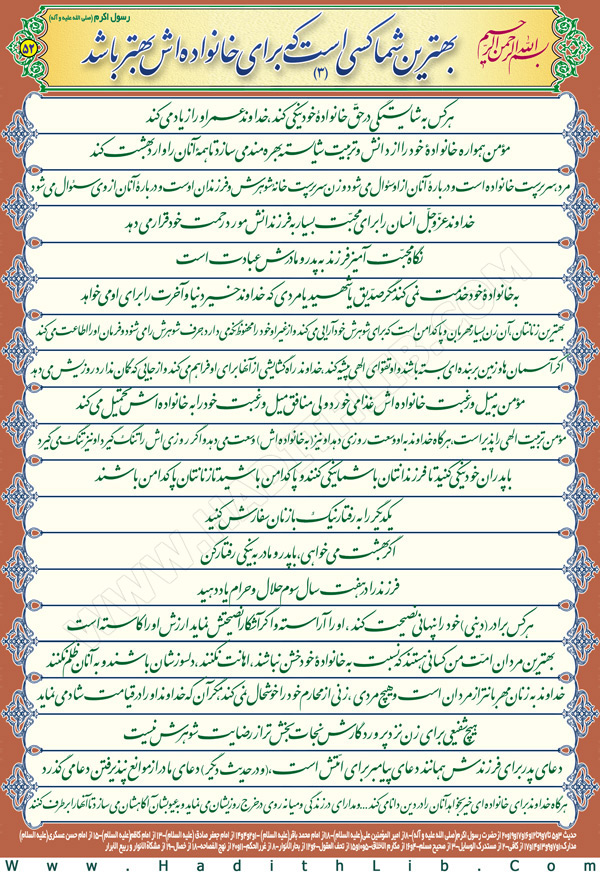 رسول اکرم (صلی الله علیه و آله)
بسم الله الرحمن الرحیم
بهترین شما کسی است که برای خانواده اش بهتر باشد
(۳)
۵۲
هرکس به شایستگی در حقّ خانوادهٔ خود نیکی کند، خداوند عمر او را زیاد می کند
مؤمن همواره خانوادهٔ خود را از دانش و تربیت شایسته بهره مند می سازد تا همهٔ آنان را وارد بهشت کند
مرد، سرپرست خانواده است و دربارهٔ آنان از او سئوال می شود و زن سرپرست خانهٔ شوهرش و فرزندان اوست و دربارهٔ آنان از وی سئوال می شود
خداوند عزّوجلّ انسان را برای محبّت بسیار به فرزندانش مورد رحمت خود قرار می دهد
نگاه محبّت آمیز فرزند به پدر و مادرش عبادت است
به خانوادهٔ خود خدمت نمی کند مگر صدّیق یا شهید یا مردی که خداوند خیر دنیا و آخرت را برای او می خواهد
بهترین زنانتان، آن زن بسیار مهربان و پاکدامن است که برای شوهرش خودآرایی می کند و از غیر او خود را محفوظ نگه می دارد، حرف شوهرش را می شنود و فرمان او را اطاعت می کند
اگر آسمان ها و زمین بر بنده ای بسته باشند و او تقوای الهی پیشه کند، خداوند راه گشایشی از آنها برای او فراهم می کند و از جایی که گمان ندارد روزیش می دهد
مؤمن به میل و رغبت خانواده اش غذا می خورد ولی منافق میل و رغبت خود را به خانواده اش تحمیل می کند
مؤمن تربیت الهی را پذیراست، هرگاه خداوند به او وسعت روزی دهد او نیز (به خانواده اش) وسعت می دهد و اگر روزی اش را تنگ گیرد او نیز تنگ می گیرد
با پدران خود نیکی کنید تا فرزندانتان با شما نیکی کنند و پاکدامن باشید تا زنانتان پاکدامن باشند
یکدیگر را به رفتار نیک با زنان سفارش کنید
اگر بهشت می خواهی، با پدر و مادر به نیکی رفتار کن
فرزند را در هفت سال سوم حلال و حرام یاد دهید
هرکس برادر (دینی) خود را نهانی نصیحت کند، او را آراسته و اگر آشکارا نصیحتش نماید ارزش او را کاسته است
بهترین مردان امّت من کسانی هستند که نسبت به خانوادهٔ خود خشن نباشند، اهانت نکنند، دلسوزشان باشند و به آنان ظلم نکنند
خداوند به زنان مهربانتر از مردان است و هیچ مردی، زنی از محارم خود را خوشحال نمی کند مگر آن که خداوند او را در قیامت شاد می نماید
هیچ شفیعی برای زن نزد پروردگارش نجات بخش تر از رضایت شوهرش نیست
دعای پدر برای فرزندش همانند دعای پیامبر برای امّتش است، (و در حدیث دیگر) دعای ما در از موانع نپذیرفتن دعا می گذرد
هرگاه خداوند برای خانواده ای خیر بخواهد آنان را در دین دانا می کند... و مدارای در زندگی و میانه روی در خرج روزیشان می نماید و به عیوبشان آگاهشان می سازد تا آنها را برطرف کنند
WWW.HADITHLIB.COM
www.HadithLib.Com